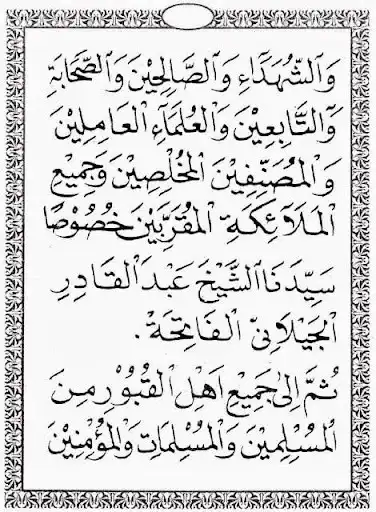 وَالشُّهَدَاءِ وَالصَّالِحِيْنَ وَالصَّحَابَةِ
وَالتَّابِعِيْنَ وَالْعُلَمَاءِ الْعَامِلِيْنَ
وَالْمُصَنِّفِيْنَ الْمُخْلِصِيْنَ وَجَمِيْعِ
الْمَلَآئِكَةِ الْمُقَرَّبِيْنَ خُصُوْصًا
سَيِّدَنَا الشَّيْخَ عَبْدَ الْقَادِرِ
الْجَيْلَانِيّ الْفَاتِحَةْ .
ثُمَّ اِلَى جَمِيْعِ اَهْلِ الْقُبُوْرِ مِنَ
الْمُسْلِمِيْنَ وَالْمُسْلِمَاتِ وَالْمُؤْمِنِيْنَ